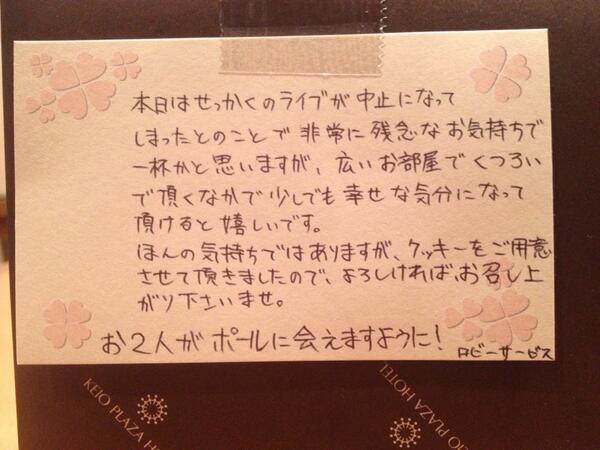 本日はせっかくのライブが中止になって
しまったとのことで非常に残念なお気持ちで
一杯かと思いますが、広いお部屋でくつろい
で頂くなかで少しでも幸せな気分になって
頂けると嬉しいです。
ほんの気持ちではありますが、クッキーをご用意
させて頂きましたので、よろしければ、お召し上
がり下さいませ。
お2人がポールに会えますように!
ロビーサービス
KEIO PLAZA HO
EIO PLAZA HOTEL